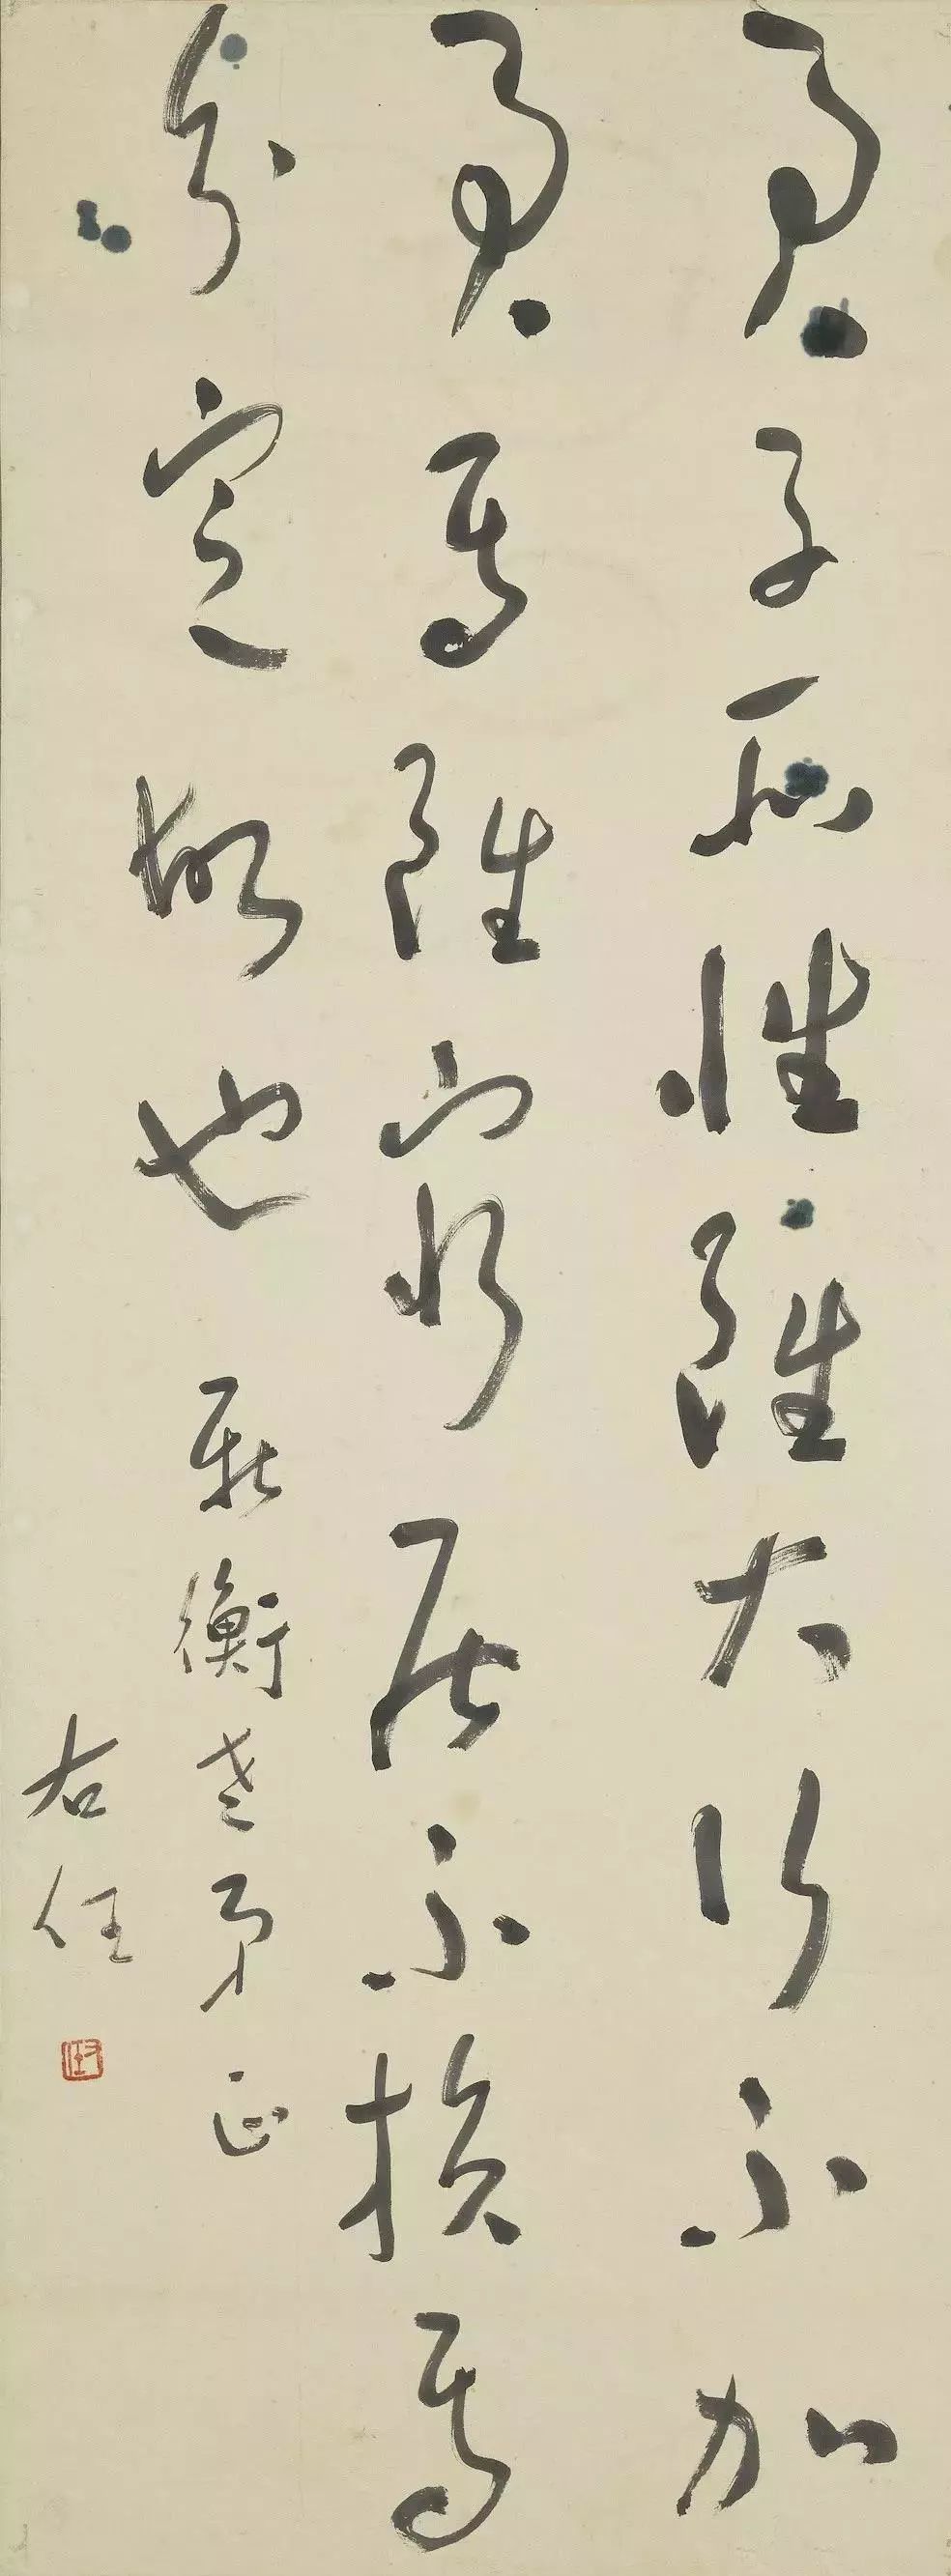 君子所性雖大行不加
君焉雖窮居不損焉
分定故也 衡老弟正
右任
右任